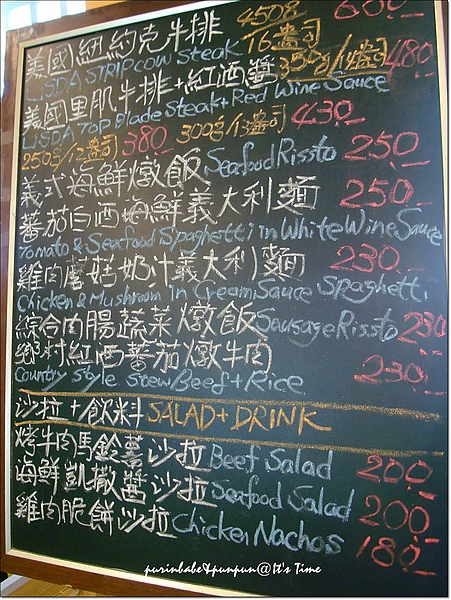 美國紐約克牛排 450g 16盎司 680.
USDA STRIPCOW Steak 350g/14盎司 480
美國里肌牛排+紅酒醬
USDA Top Blade Steak + Red Wine Sauce
250g/12盎司 380 300g/13盎司 430.
義式海鮮燉飯 Seafood Rissto 250.
蕃茄白酒海鮮義大利麵 250.
Tomato & Seafood Spaghetti in White Wine Sauce
雞肉蘑菇奶汁義大利麵 230.
Chicken & Mushroom in Cream Sauce Spaghetti
綜合肉腸蔬菜燉飯 Sausage Rissto 230
鄉村紅酒蕃茄燉牛肉
Country Style Stew Beef + Rice 230.
沙拉+飲料 SALAD + DRINK
烤牛肉馬鈴薯沙拉 Beef Salad 200.
海鮮凱撒醬沙拉 Seafood Salad 200.
雞肉脆餅沙拉 Chicken Nachos 180.
purinbabe&punpun@It's Time